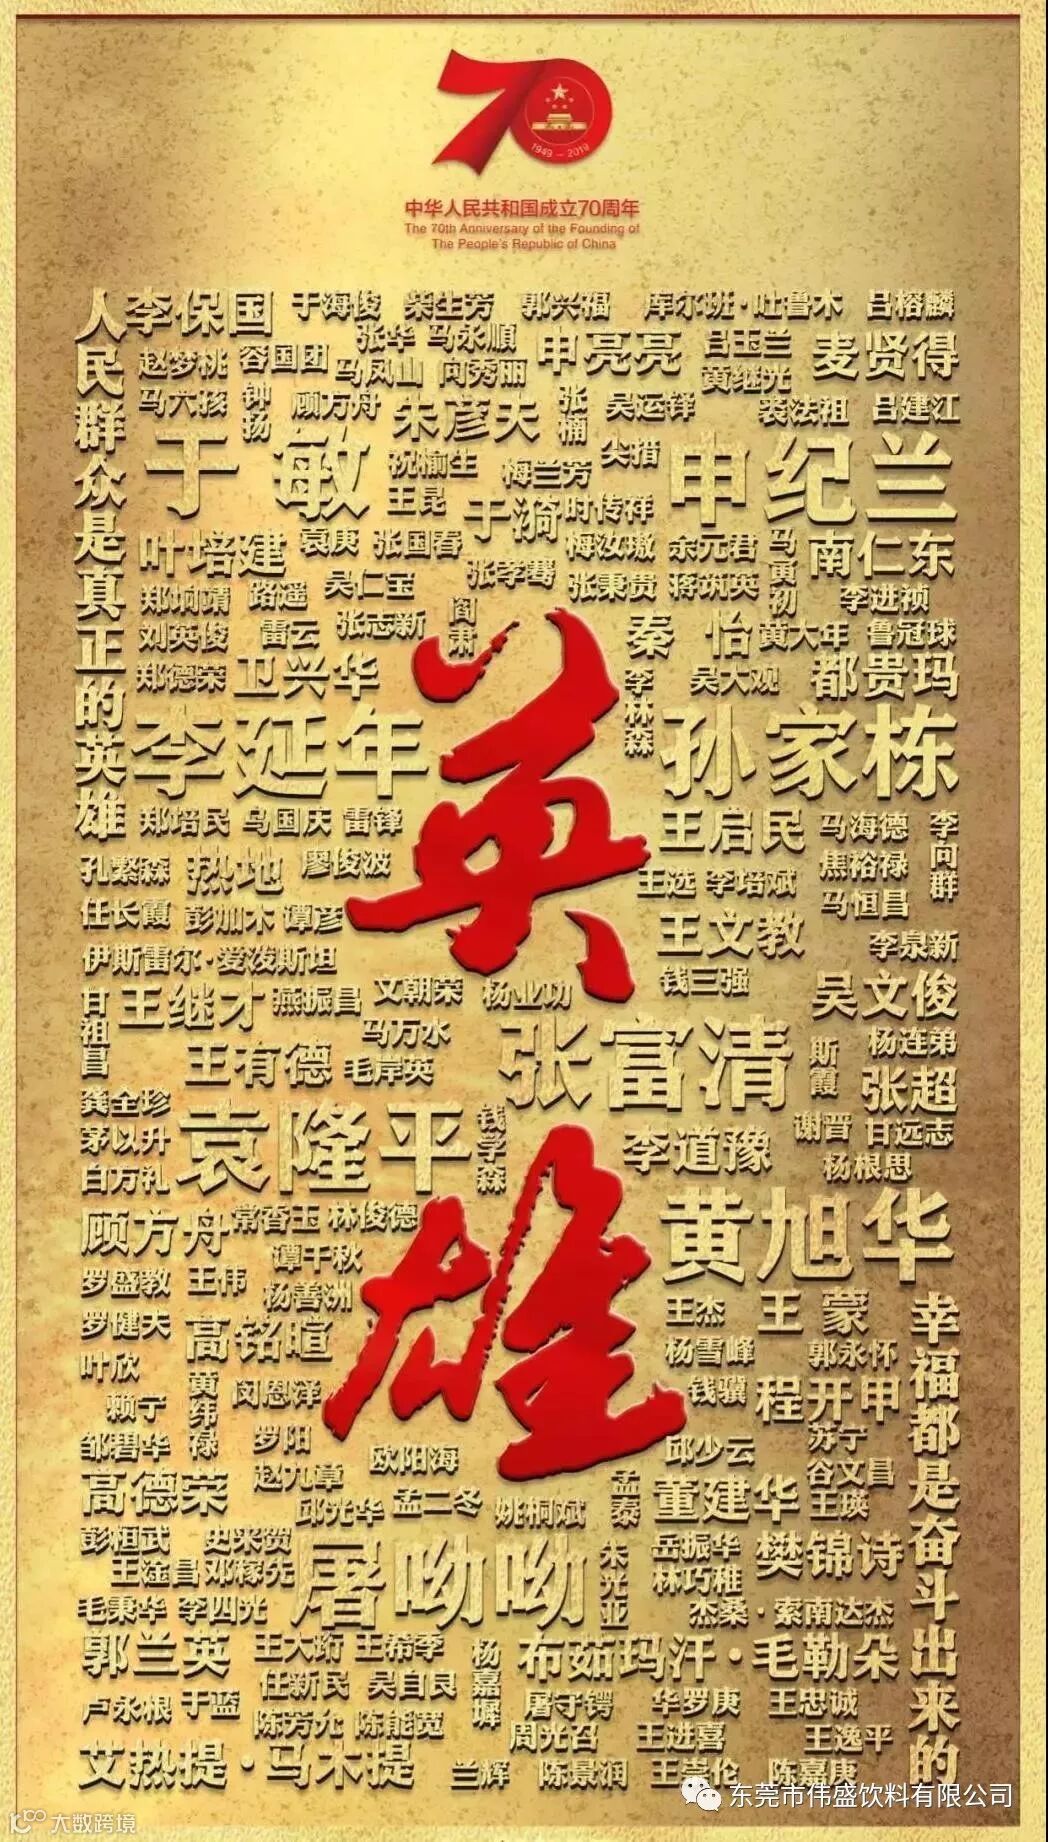 70
1949 - 2019
中华人民共和国成立70周年
The 70th Anniversary of the Founding of
The People's Republic of China
人民群众是真正的英雄
李保国 于海俊 柴生芳 郭兴福 库尔班·吐鲁木 吕榕麟
赵梦桃 容国团 张华 马永顺 申亮亮 吕玉兰 麦贤得
马凤山 向秀丽 黄继光
马六孩 钟扬 顾方舟 朱彦夫 张楠 吴运铎 裘法祖 吕建江
于敏 祝榆生 梅兰芳 尖措 申纪兰
王昆 于漪 时传祥
叶培建 袁庚 张国春 梅汝璈 余元君 马寅初 南仁东
郑垧靖 路遥 吴仁宝 张孝骞 张秉贵 蒋筑英 李进祯
刘英俊 雷云 张志新 阎肃 秦怡 黄大年 鲁冠球
郑德荣 卫兴华 李林森 吴大观 都贵玛
李延年 孙家栋
郑培民 乌国庆 雷锋 王启民 马海德 李向群
孔繁森 热地 廖俊波 王选 李培斌 焦裕禄
任长霞 彭加木 谭彦 王文教 马恒昌
伊斯雷尔·爱泼斯坦 李泉新
甘祖昌 王继才 燕振昌 文朝荣 杨业功 钱三强 吴文俊
马万水 张富清 斯霞 杨连弟
王有德 毛岸英 张超
龚全珍 袁隆平 钱学森 李道豫 谢晋 甘远志
茅以升 杨根思
白方礼
顾方舟 常香玉 林俊德 黄旭华
谭千秋
罗盛教 王伟 杨善洲 王杰 王蒙
罗健夫 高铭暄 杨雪峰 郭永怀
叶欣 黄纬禄 闵恩泽 钱骥 程开甲
赖宁
邹碧华 罗阳 欧阳海 邱少云 苏宁
高德荣 赵九章 孟泰 董建华 谷文昌
邱光华 孟二冬 姚桐斌 王瑛
彭桓武 史来贺 屠呦呦 朱光亚 岳振华 樊锦诗
王淦昌 邓稼先 林巧稚
毛秉华 李四光 杰桑·索南达杰
郭兰英 王大珩 王希季 杨嘉墀 布茹玛汗·毛勒朵
任新民 吴自良
卢永根 于蓝 屠守锷 华罗庚 王忠诚
陈芳允 陈能宽 周光召 王进喜 王逸平
艾热提·马木提 兰辉 陈景润 王崇伦 陈嘉庚
幸福都是奋斗出来的
英雄
东莞市伟盛饮料有限公司
大数跨境